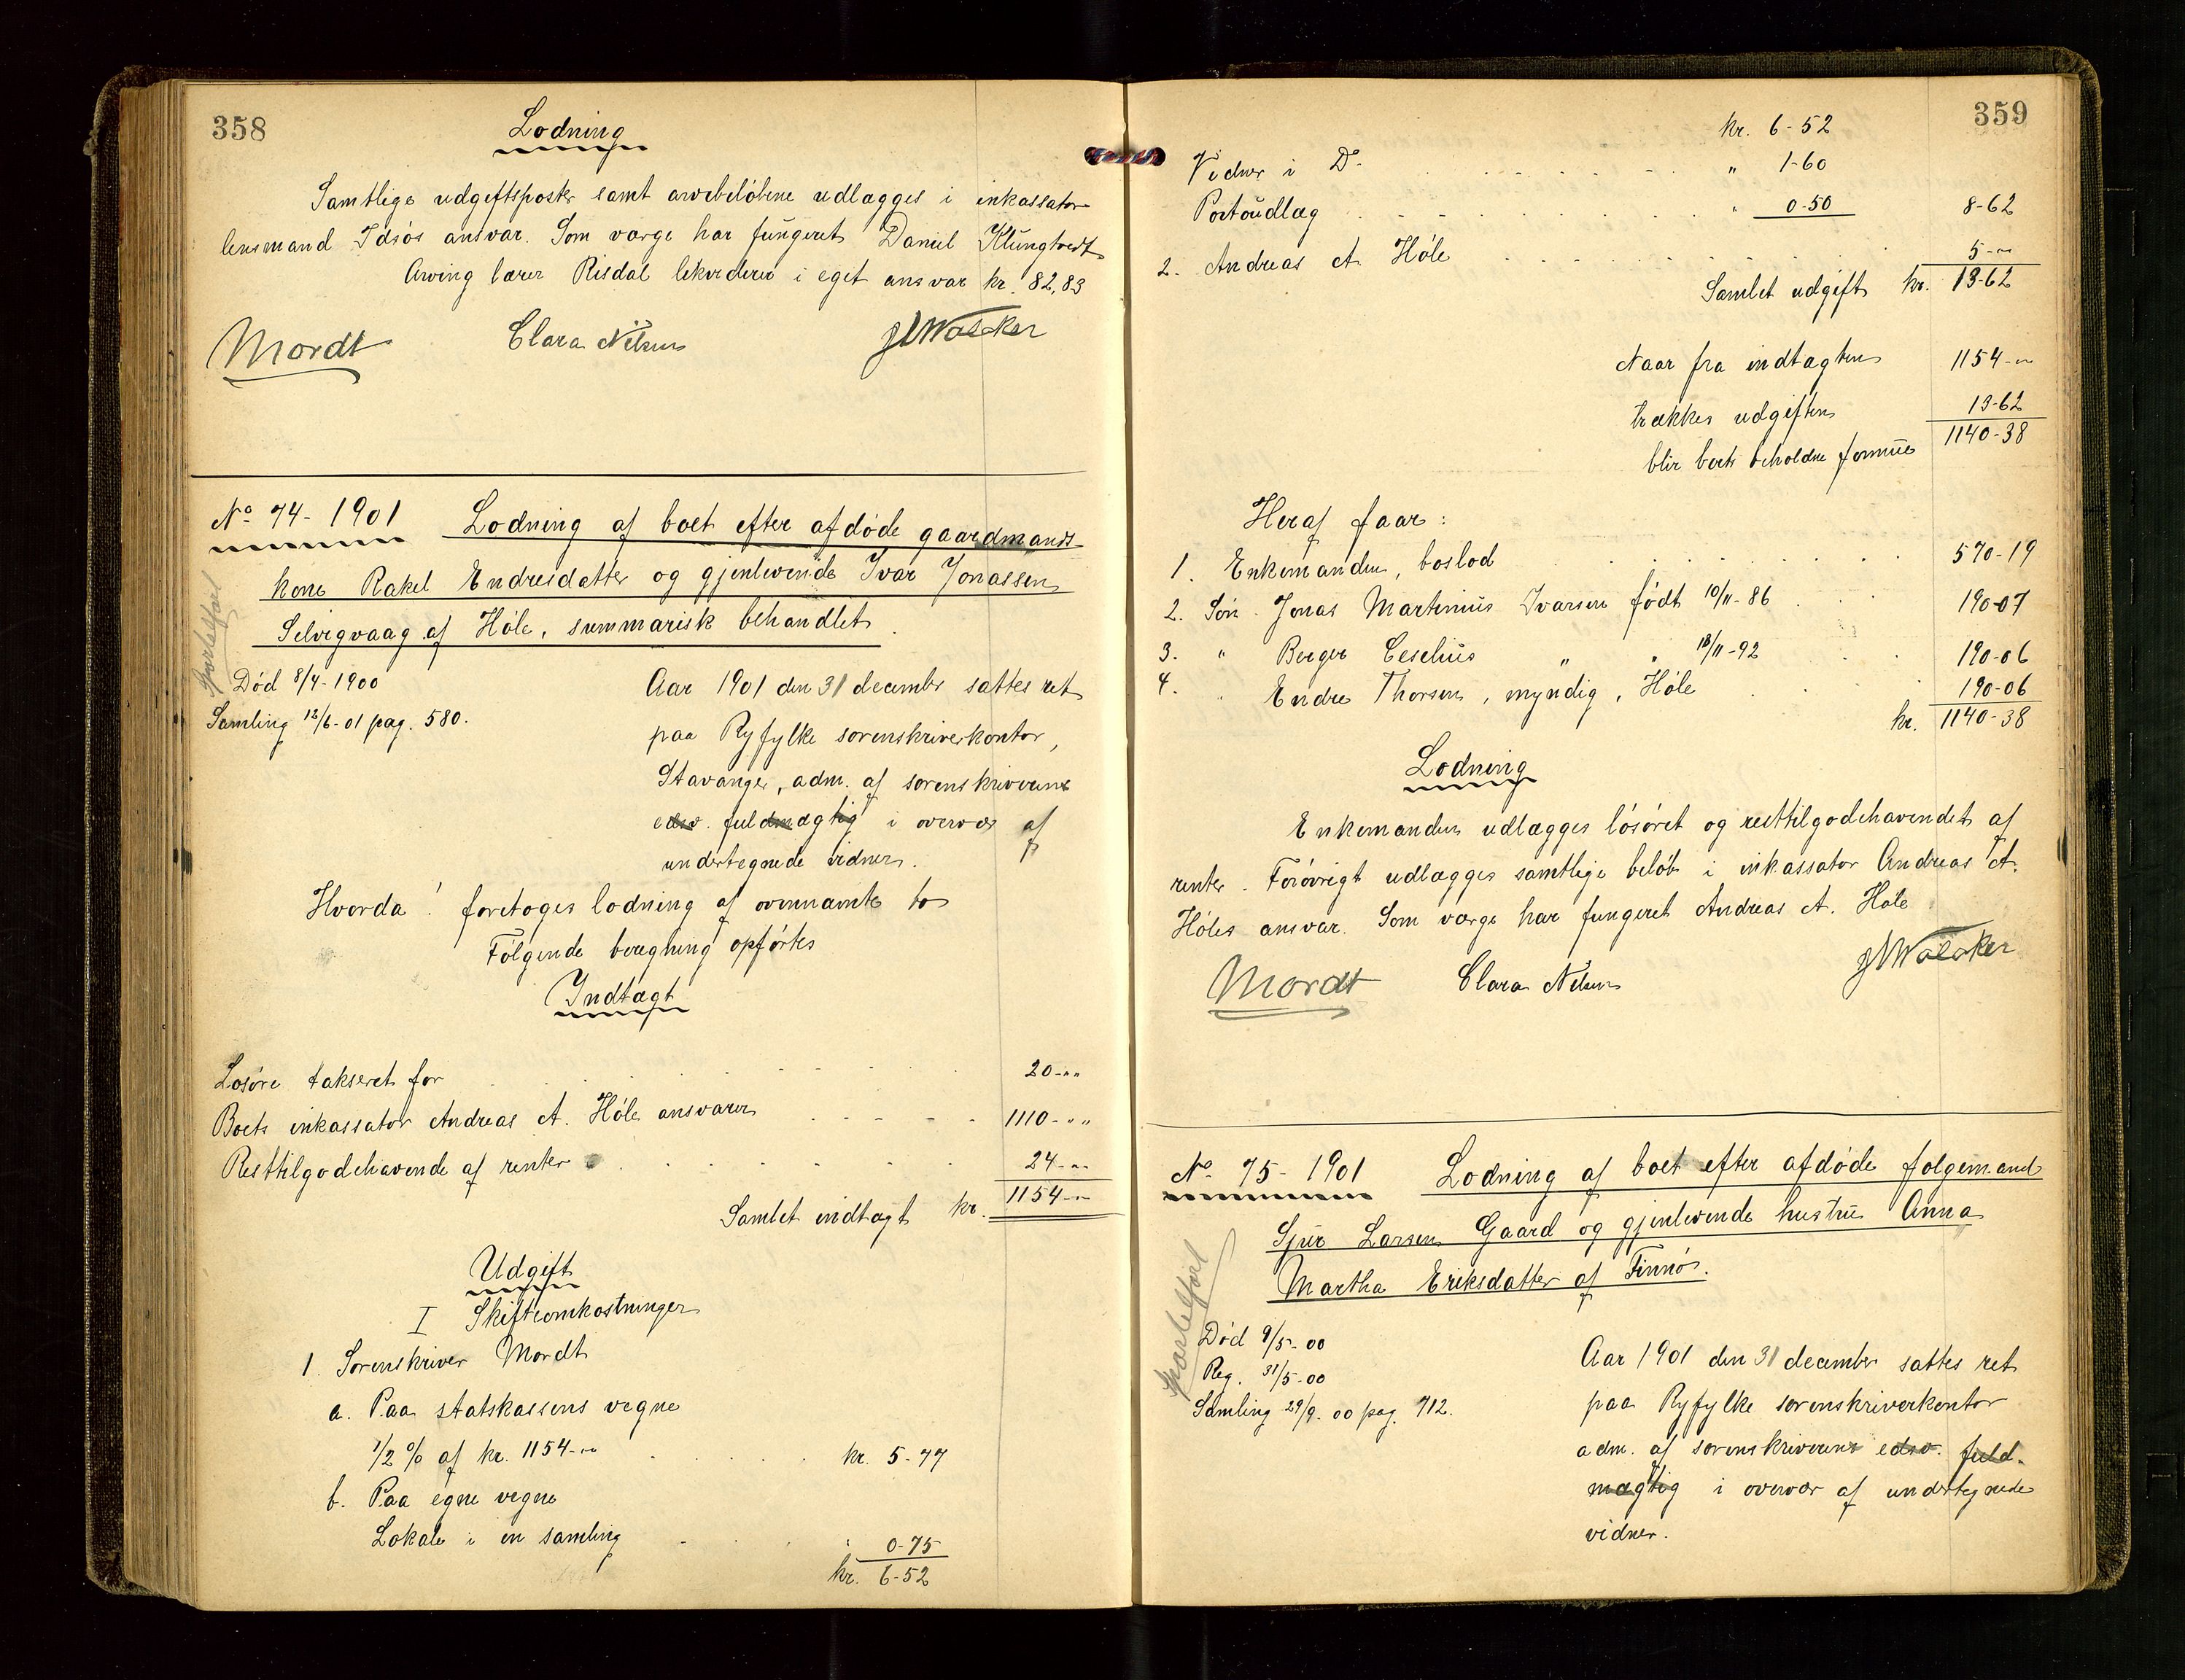 358
Lodning
Samtlige udgiftsposter samt arvebeløbene udlægges i inkassator
lensmand Idsøs ansvar. Som værge har fungeret Daniel Klungtvedt
Arving lærer Risdal likviderer i eget ansvar kr. 82,83
Mordt Clara Nilsen
No 74-1901 Lodning af boet efter afdøde gaardmands
kone Rakel Endresdatter og gjenlevende Ivar Jonassen
Selvigvaag af Høle, summarisk behandlet.
Død 8/4-1900
Samling 12/6-01 pag. 580.
Aar 1901 den 31 decembr sattes ret
paa Ryfylke sorenskriverkontor,
Stavanger, adm. af sorenskriveren
edsv. fuldmægtig i overvær af
undertegnede vidner.
Hvorda: foretoges lodning af ovennævnte bo
Følgende beregning opførtes
Indtægt
Løsøre takseret for 20-""
Boets inkassator Andreas A. Høle ansvarer 1110-""
Resttilgodehavende af renter 24-""
Samlet indtægt kr. 1154-"
Udgift
I Skifteomkostninger
1. Sorenskriver Mordt
a. Paa statskassens vegne
1/2 % af kr. 1154-" kr. 5-77
b. Paa egne vegne
Lokale i en samling " 0-75
kr. 6-52
359
kr. 6-52
Vidner i Do " 1-60
Portoudlæg " 0-50 8-62
2. Andreas A. Høle 5-"
Samlet udgift kr. 13-62
Naar fra indtægten 1154-"
trækkes udgiften 13-62
blir boets beholdne formue 1140-38
Heraf faar:
1. Enkemanden, boslod 570-19
2. Søn Jonas Martinius Ivarsen født 10/11-86 190-07
3. " Berger Ceselius " " 18/11-92 190-06
4. " Endre Thorsen, myndig, Høle 190-06
kr. 1140-38
Lodning
Enkemanden udlægges løsøret og resttilgodehavendet af
renter. Forøvrigt udlægges samtlige beløb i inkassator Andreas A.
Høles ansvar. Som værge har fungeret Andreas A. Høle
Mordt Clara Nilsen
No 75-1901 Lodning af boet efter afdøde følgemand
Sjur Larsen Gaard og gjenlevende hustru Anna
Martha Eriksdatter af Finnø.
Død 9/5-00
Reg. 31/5-00
Samling 29/9-00 pag. 712.
Aar 1901 den 31 december sattes ret
paa Ryfylke sorenskriverkontor
adm. af sorenskriveren edsv. fuld-
mægtig i overvær af undertegnede
vidner.